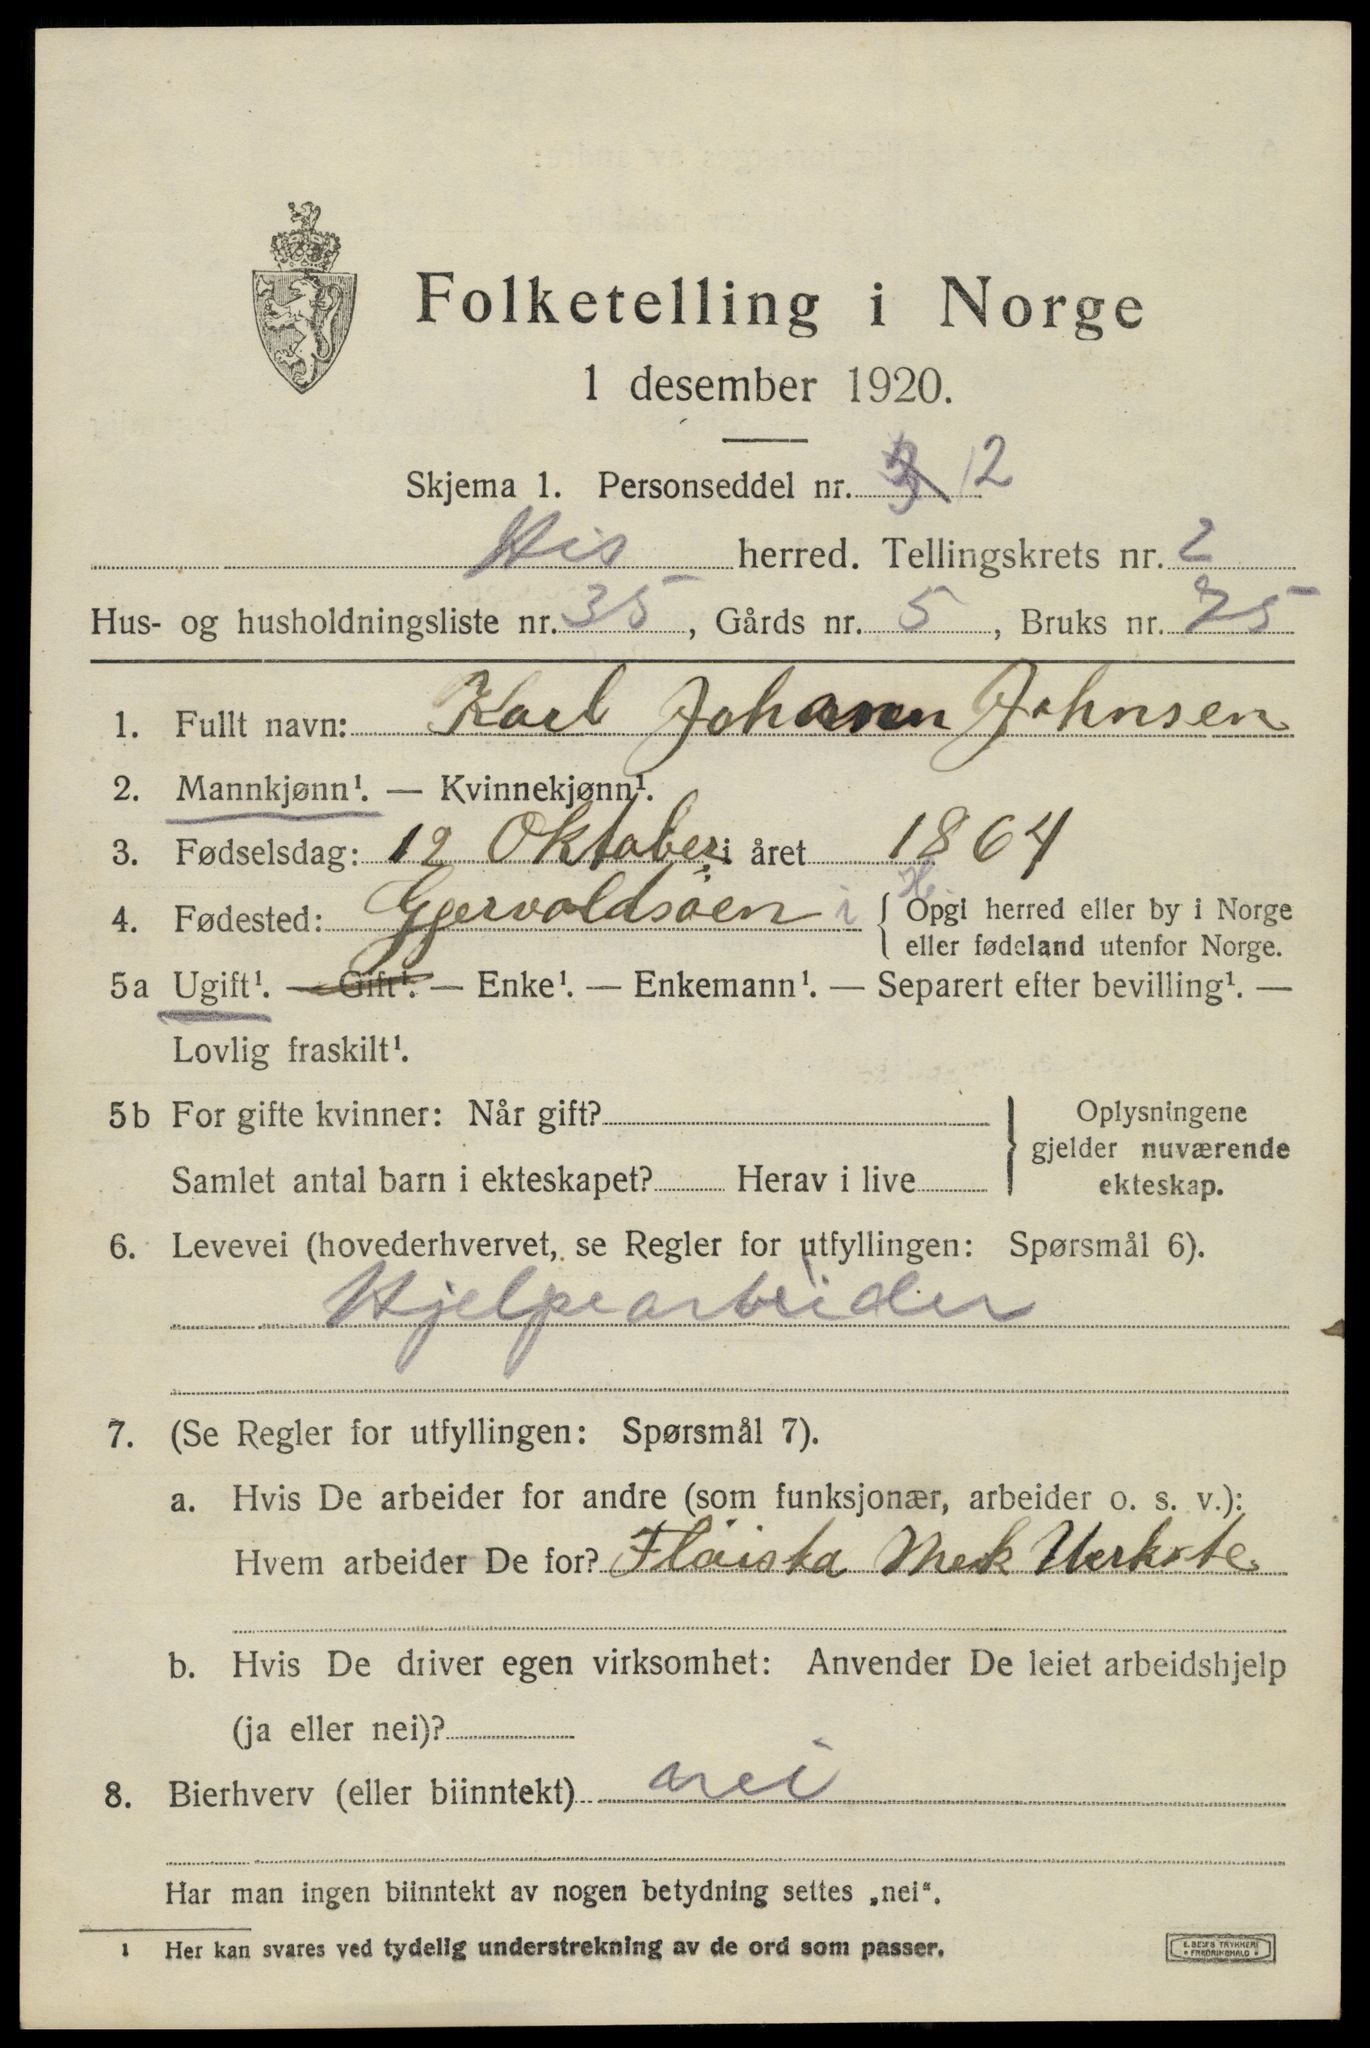 Folketelling i Norge
1 desember 1920.
Skjema 1. Personseddel nr. 3 12
His herred. Tellingskrets nr. 2
Hus- og husholdningsliste nr. 35, Gårds nr. 5, Bruks nr. 75
1. Fullt navn: Karl Johann Johnsen
2. Mannkjønn¹. — Kvinnekjønn¹.
3. Fødselsdag: 12 Oktober i året 1864
4. Fødested: Gjervoldsöen i H. { Opgi herred eller by i Norge
eller fødeland utenfor Norge.
5a Ugift¹. — Gift¹. — Enke¹. — Enkemann¹. — Separert efter bevilling¹. —
Lovlig fraskilt¹.
5b For gifte kvinner: Når gift? } Oplysningene
gjelder nuværende
Samlet antal barn i ekteskapet? Herav i live
ekteskap.
6. Levevei (hovederhvervet, se Regler for utfyllingen: Spørsmål 6).
Hjelpearbeider
7. (Se Regler for utfyllingen: Spørsmål 7).
a. Hvis De arbeider for andre (som funksjonær, arbeider o. s. v.):
Hvem arbeider De for? Flöista Mek Verkste
b. Hvis De driver egen virksomhet: Anvender De leiet arbeidshjelp
(ja eller nei)?
8. Bierhverv (eller biinntekt) nei
Har man ingen biinntekt av nogen betydning settes „nei“.
¹ Her kan svares ved tydelig understrekning av de ord som passer.
E. SEMS TRYKKERI
FREDRIKSHALD